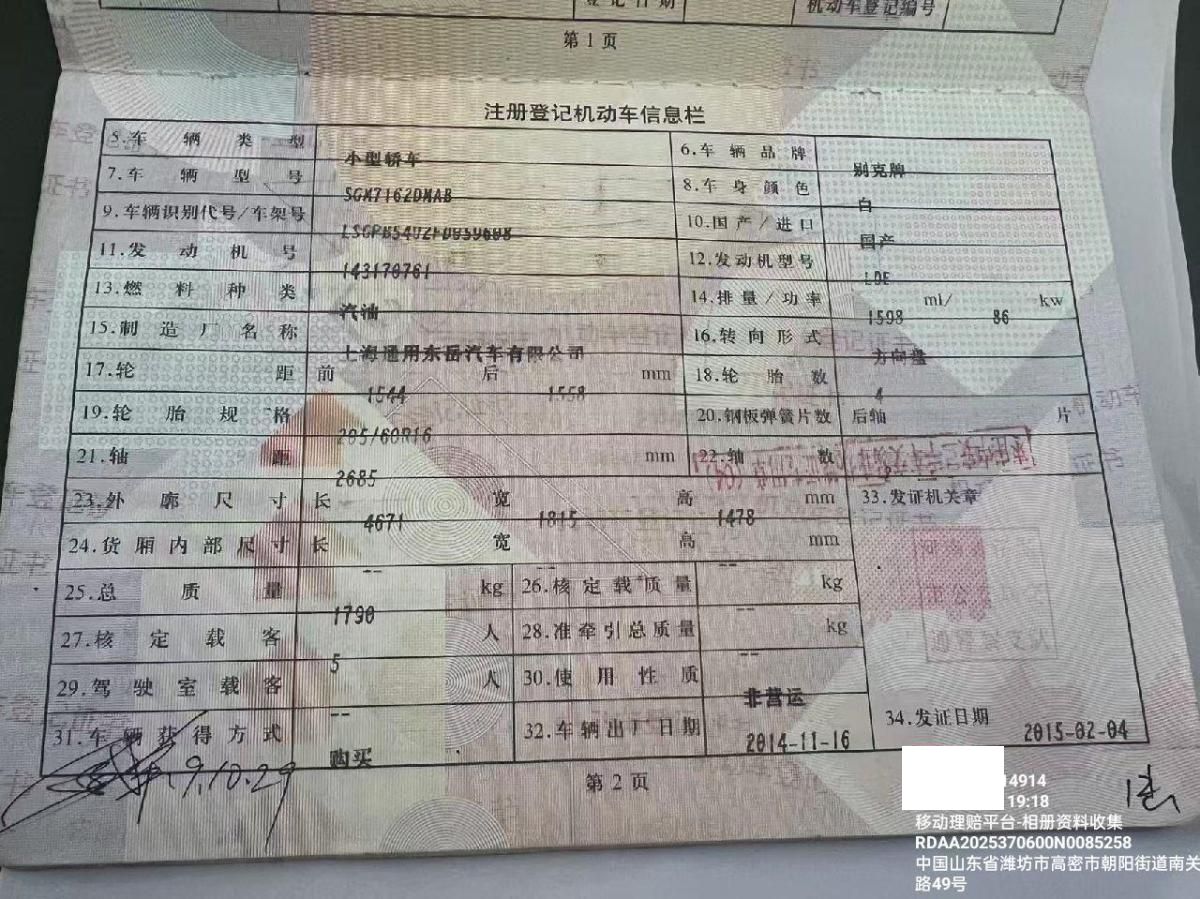 登记日期 机动车登记编号
第1页
注册登记机动车信息栏
5.车辆类型 小型轿车 6.车辆品牌 别克牌
7.车辆型号 SGM7162DMAB 8.车身颜色 白
9.车辆识别代号/车架号 10.国产/进口 国产
11.发动机号 143170761 12.发动机型号 LDE
13.燃料种类 汽油 14.排量/功率 1598 ml/ 86 kw
15.制造厂名称 上海通用东岳汽车有限公司 16.转向形式 方向盘
17.轮距 前 1544 后 1558 mm 18.轮胎数 4
19.轮胎规格 205/60R16 20.钢板弹簧片数 后轴 片
21.轴距 2685 mm 22.轴数
23.外廓尺寸 长 4671 宽 1815 高 1478 mm 33.发证机关章
24.货厢内部尺寸 长 -- 宽 高 -- mm
25.总质量 1790 kg 26.核定载质量 -- kg
27.核定载客 5 人 28.准牵引总质量 -- kg
29.驾驶室载客 -- 人 30.使用性质 非营运
31.车辆获得方式 购买 32.车辆出厂日期 2014-11-16 34.发证日期 2015-02-04
9.10.29
第2页
4914
19:18
移动理赔平台-相册资料收集
RDAA2025370600N0085258
中国山东省潍坊市高密市朝阳街道南关
路49号